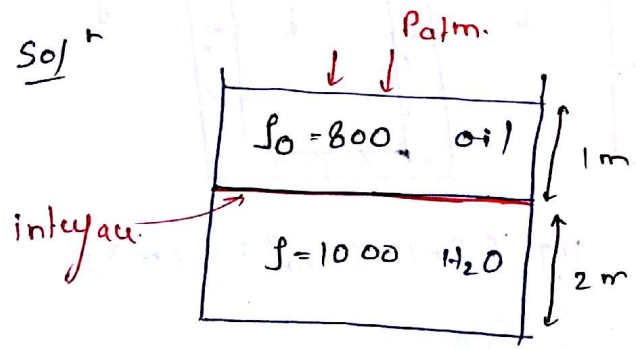 Solⁿ
Patm.
ρ₀ = 800. oil
1m
interface.
ρ = 1000 H₂O
2m